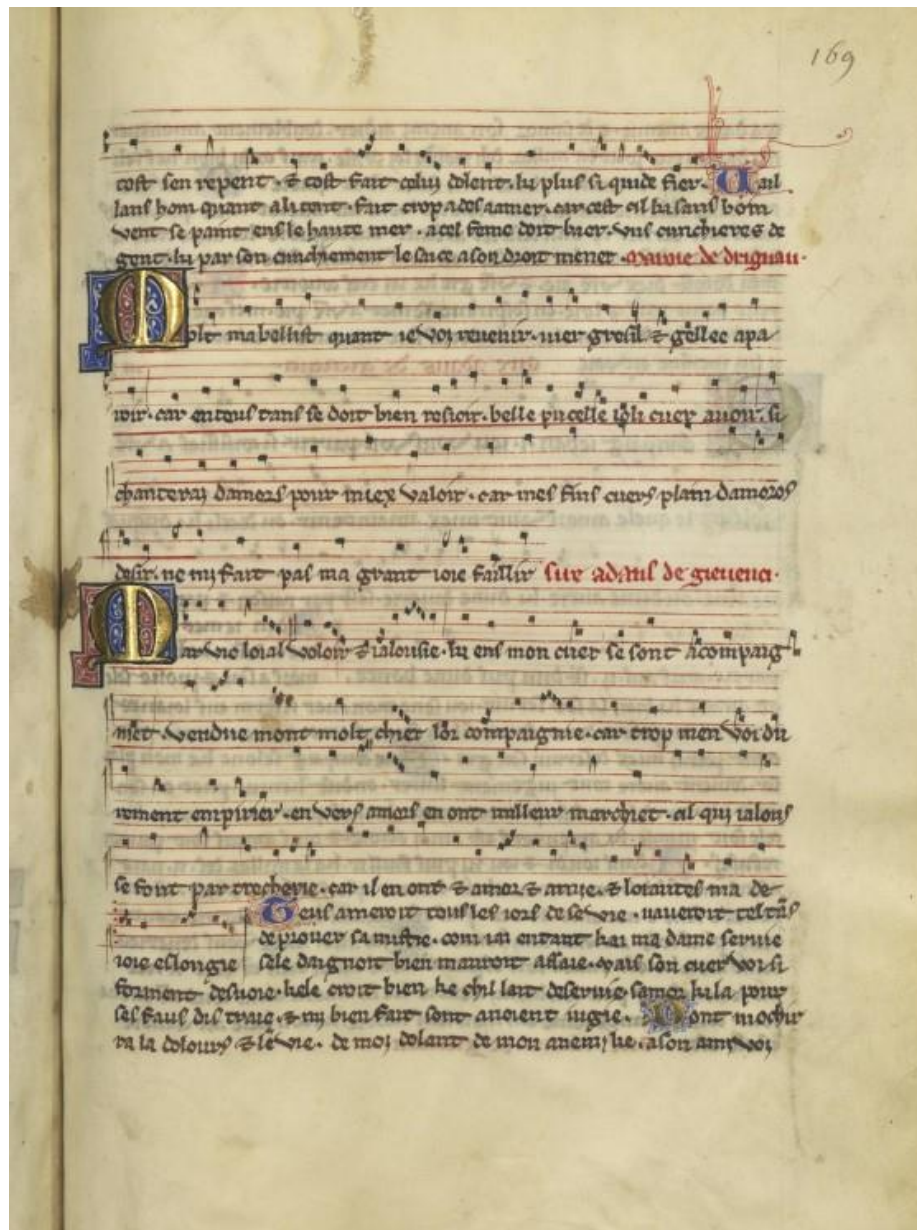 169
tost sen repent · & tost fait celui dolent · ki plus si quide fier · Vail
lans hom quant a li tent · fait trop a des aamer · car cest cil ki sans
vent se paint ens le haute mer · a cel feme doit
gent · ki par son cunchiement le sace a son droit mener · maroie de drignau ·
Molt mabellist quant ie voi revenir · yver gresil & gellee apa
roir · car en tous tans se doit bien resioir · belle pucelle ioli cuer avoir · si
chanterai damors pour miex valoir · car mes fins cuers plain damoros
desir · ne mi fait pas ma grant ioie faillir sire adans de gievenci ·
Mar vi loial voloir & ialousie · ki ens mon cuer se sont acompaig
niet · vendue mont molt chier lor compaignie · car trop men voi du
rement empirier · en vers amors en ont milleur marchiet · cil qui ialous
se font par trecherie · car il en ont & amor & amie · & loiautes ma de
ioie eslongie
Teus ameroit tous les iors de se vie · naveroit tel tans
de prover sa mistie · com iai en tant kai ma dame servie
sele daignoit bien mauroit assaie · mais son cuer voi si
forment desvoie · kele croit bien ke chil lait deservie samor ki la pour
ses faus dis traie · & mi bien fait sont anoient iugie · Dont mochir
ra la dolours & le vie · de moi dolant de mon anemi ke · a son ami voi